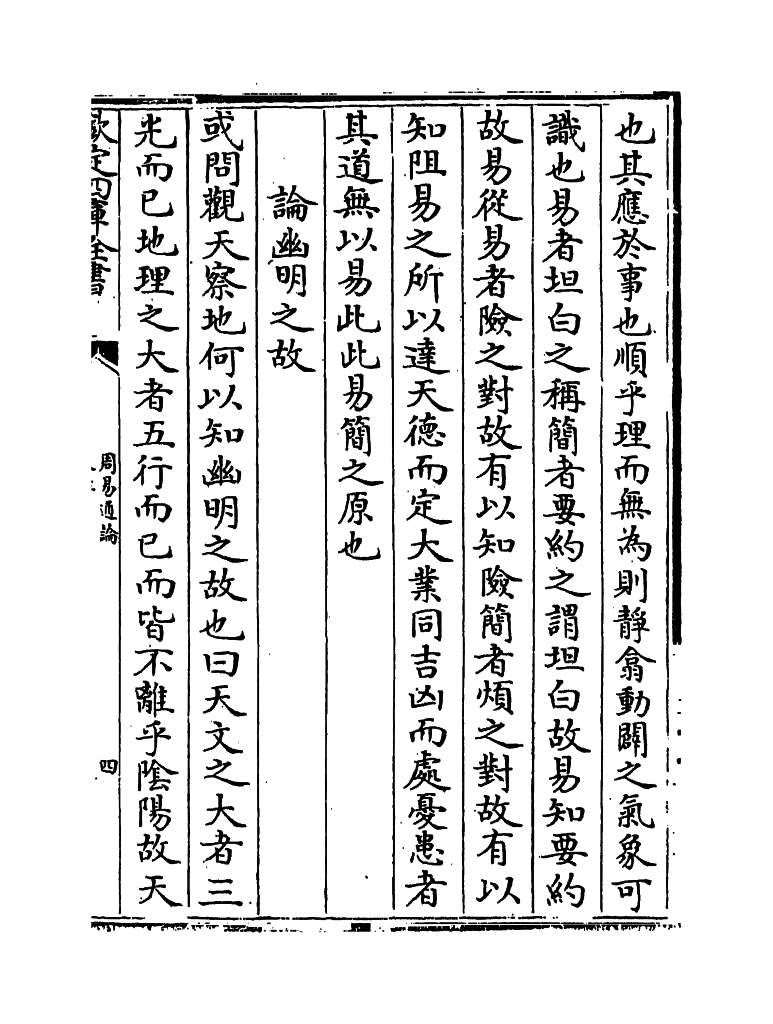 也其應於事也順乎理而無為則靜翕動闢之氣象可
識也易者坦白之稱簡者要約之謂坦白故易知要約
故易從易者險之對故有以知險簡者煩之對故有以
知阻易之所以達天德而定大業同吉凶而處憂患者
其道無以易此此易簡之原也
論幽明之故
或問觀天察地何以知幽明之故也曰天文之大者三
光而已地理之大者五行而已而皆不離乎陰陽故天
欽定四庫全書
周易通論
四